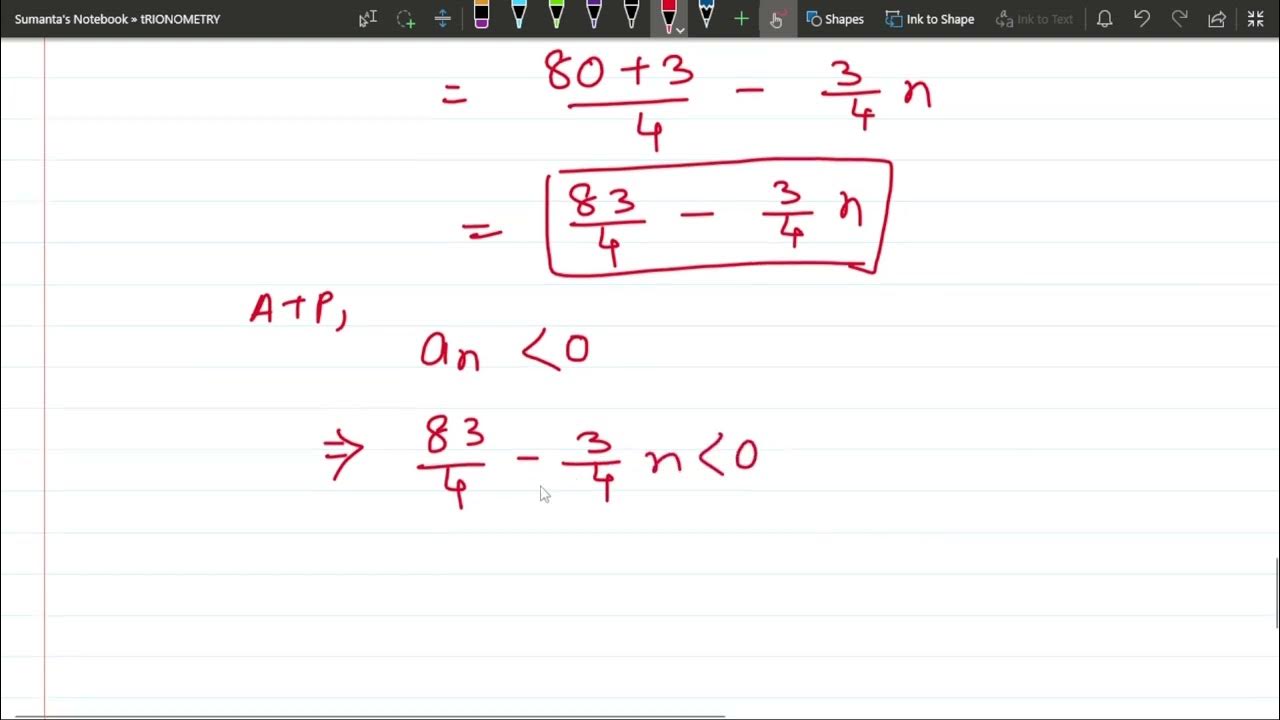 Sumanta's Notebook » tRIONOMETRY Shapes Ink to Shape Ink to Text
= 80 + 3 / 4 - 3 / 4 n
= 83 / 4 - 3 / 4 n
A+P,
an < 0
⇒ 83 / 4 - 3 / 4 n < 0